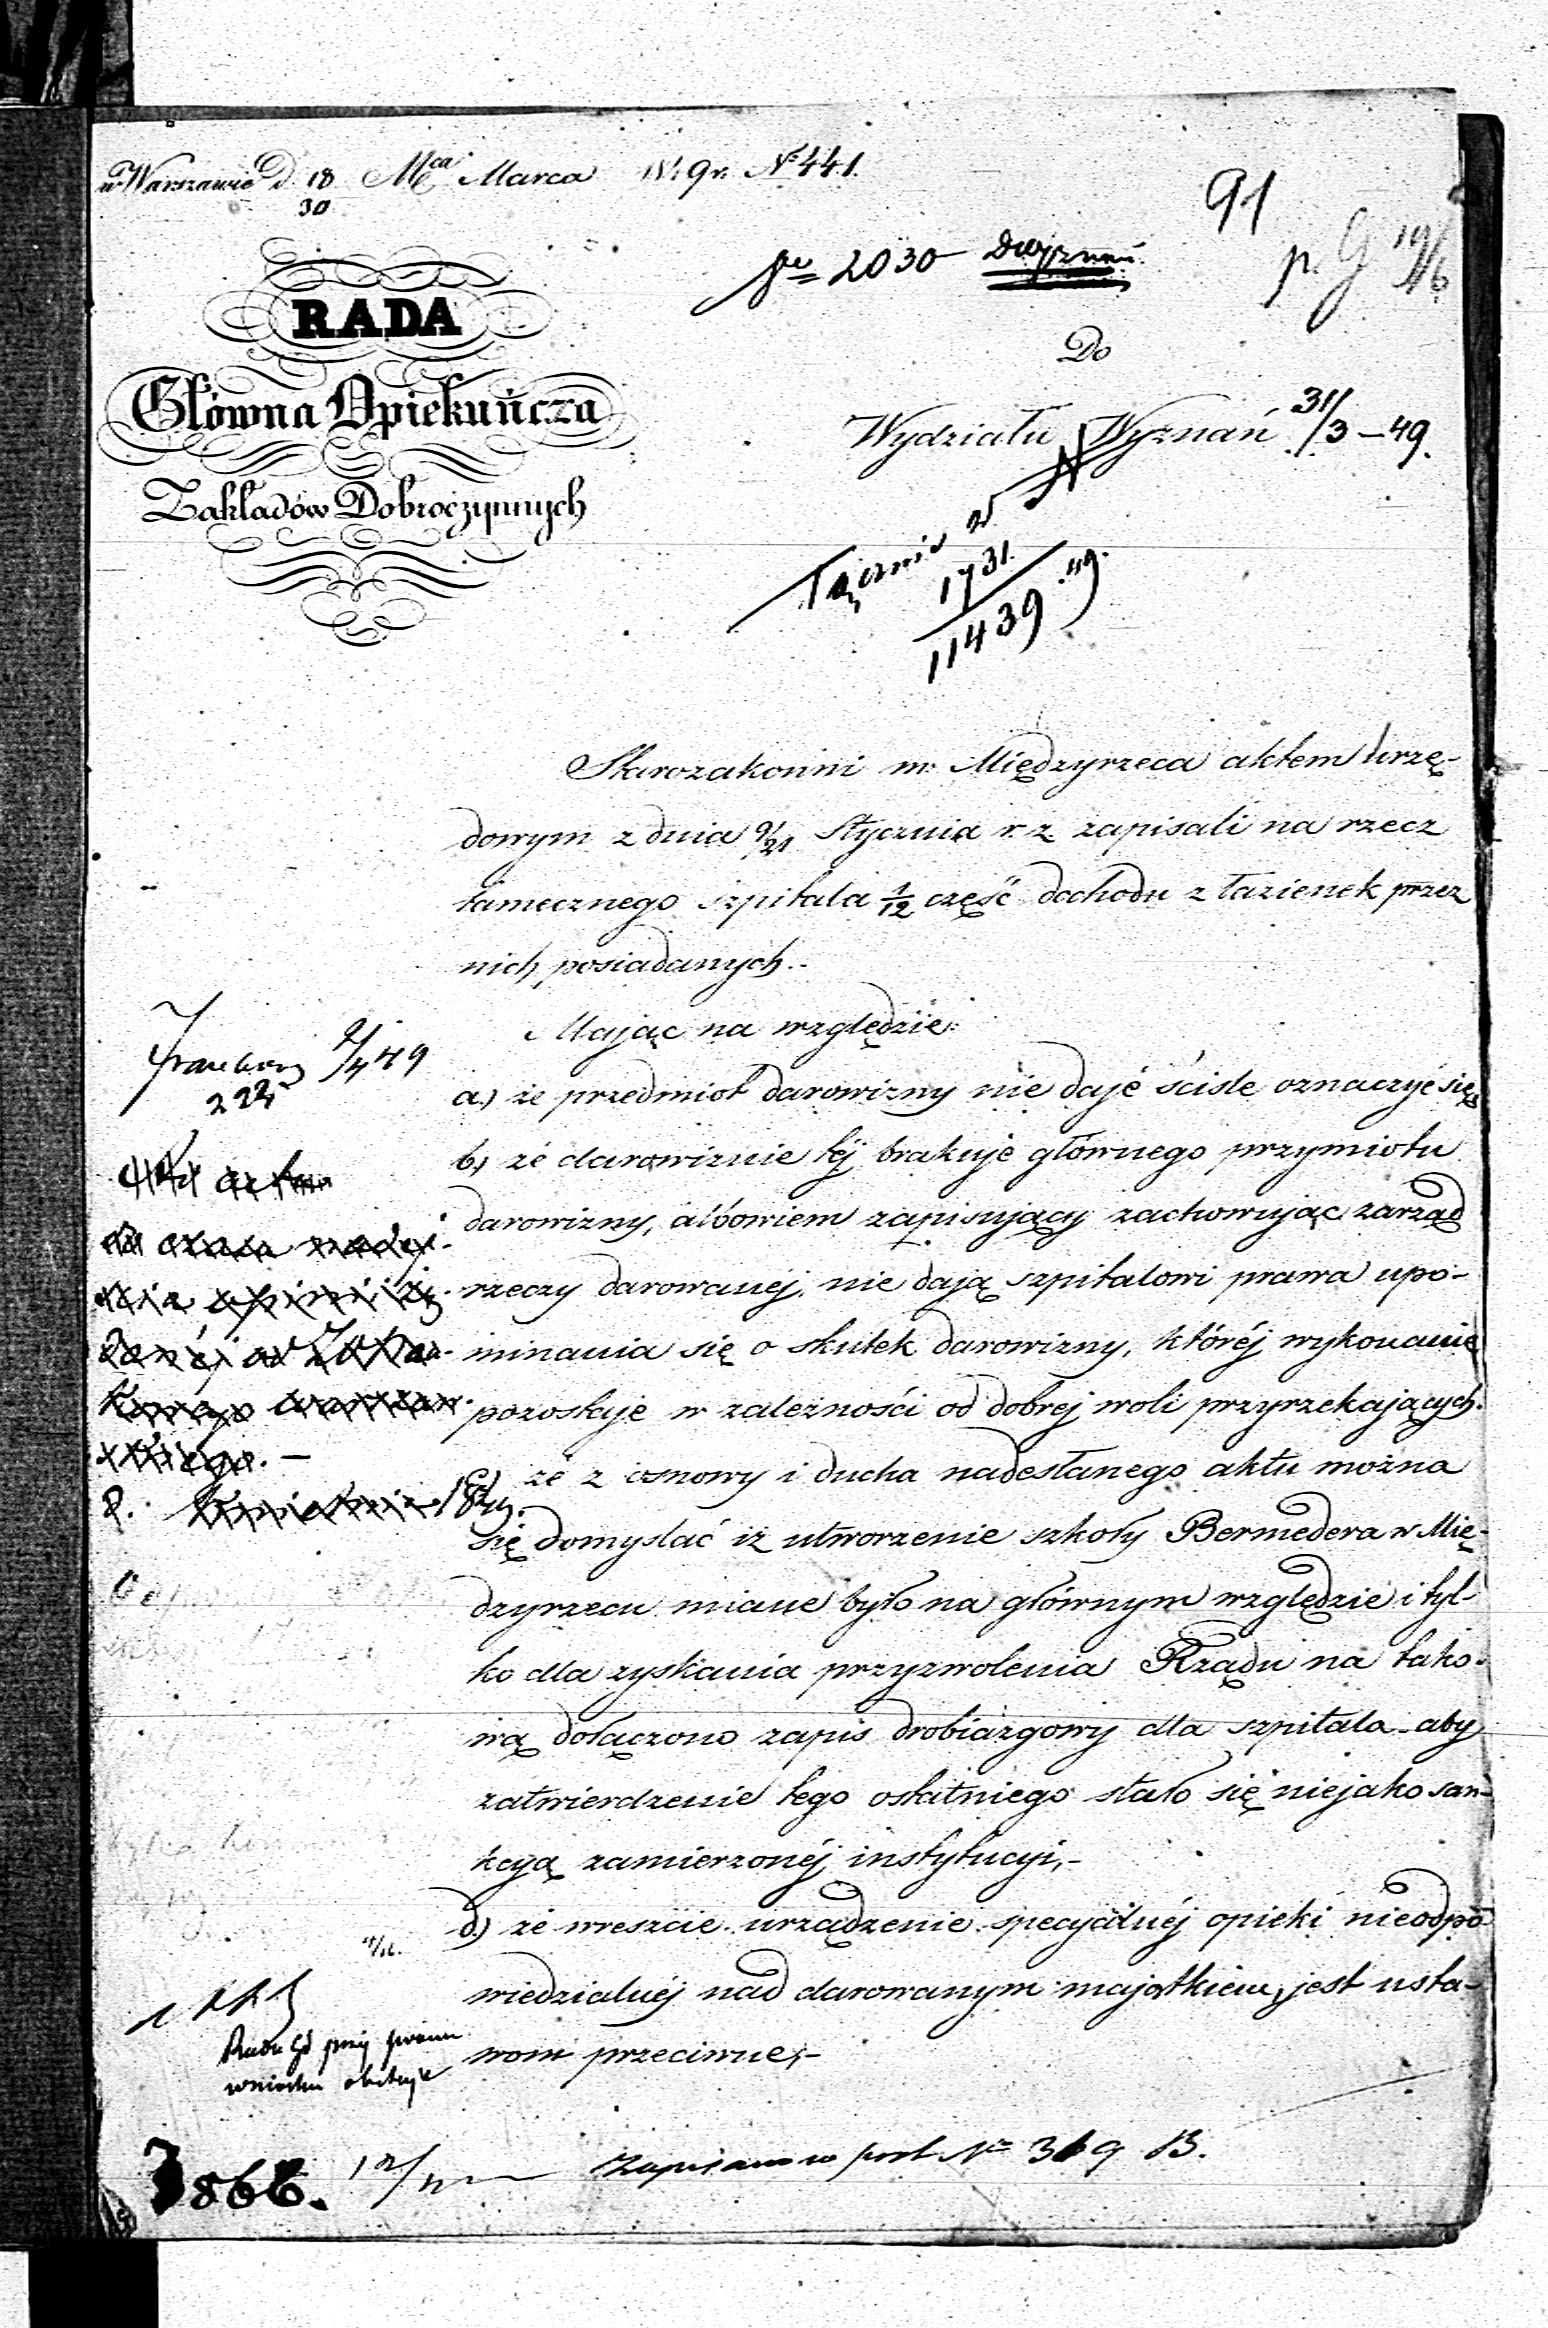 w Warszawie D. 18/30 Mca Marca 1849 r. No 441.
91
2030
p. G 19/6
RADA
Główna Opiekuńcza
Zakładów Dobroczynnych
Do
Wydziału Wyznań 31/3 – 49.
Łącznie z N
1731.
11439 .49.
Starozakonni m: Międzyrzeca aktem urzę-
dowym z dnia 9/21 Stycznia r. z. zapisali na rzecz
tamecznego szpitala 1/12 część dochodu z łazienek przez
nich posiadanych.-
Mając na względzie:
a.) że przedmiot darowizny nie daje ściśle oznaczyć się
b.) że darowiznie téj brakuje głównego przymiotu
darowizny, albowiem zapisujący zachowując zarząd
rzeczy darowanéj, nie dają szpitalowi prawa upo-
minania się o skutek darowizny, któréj wykonanie
pozostaje w zależności od dobréj woli przyrzekających.
c) że z osnowy i ducha nadesłanego aktu można
się domyslać iż utworzenie szkoły Bermedera w Mię-
dzyrzecu miane było na głównym względzie i tyl-
ko dla zyskania przyzwolenia Rządu na tako-
wą dołączono zapis drobiazgowy dla szpitala aby
zatwierdzenie tego ostatniego stało się niejako san-
kcyą zamierzonéj instytucyi,-
d) że wreszcie urządzenie specyalnéj opieki nieodpo
wiedzialnéj nad darowanym majątkiem, jest usta-
wom przeciwne,-
2/4 49
225
Rada Gł przy swoim
wniosku obstaje
3866.
Zapisano w post No 369 B.